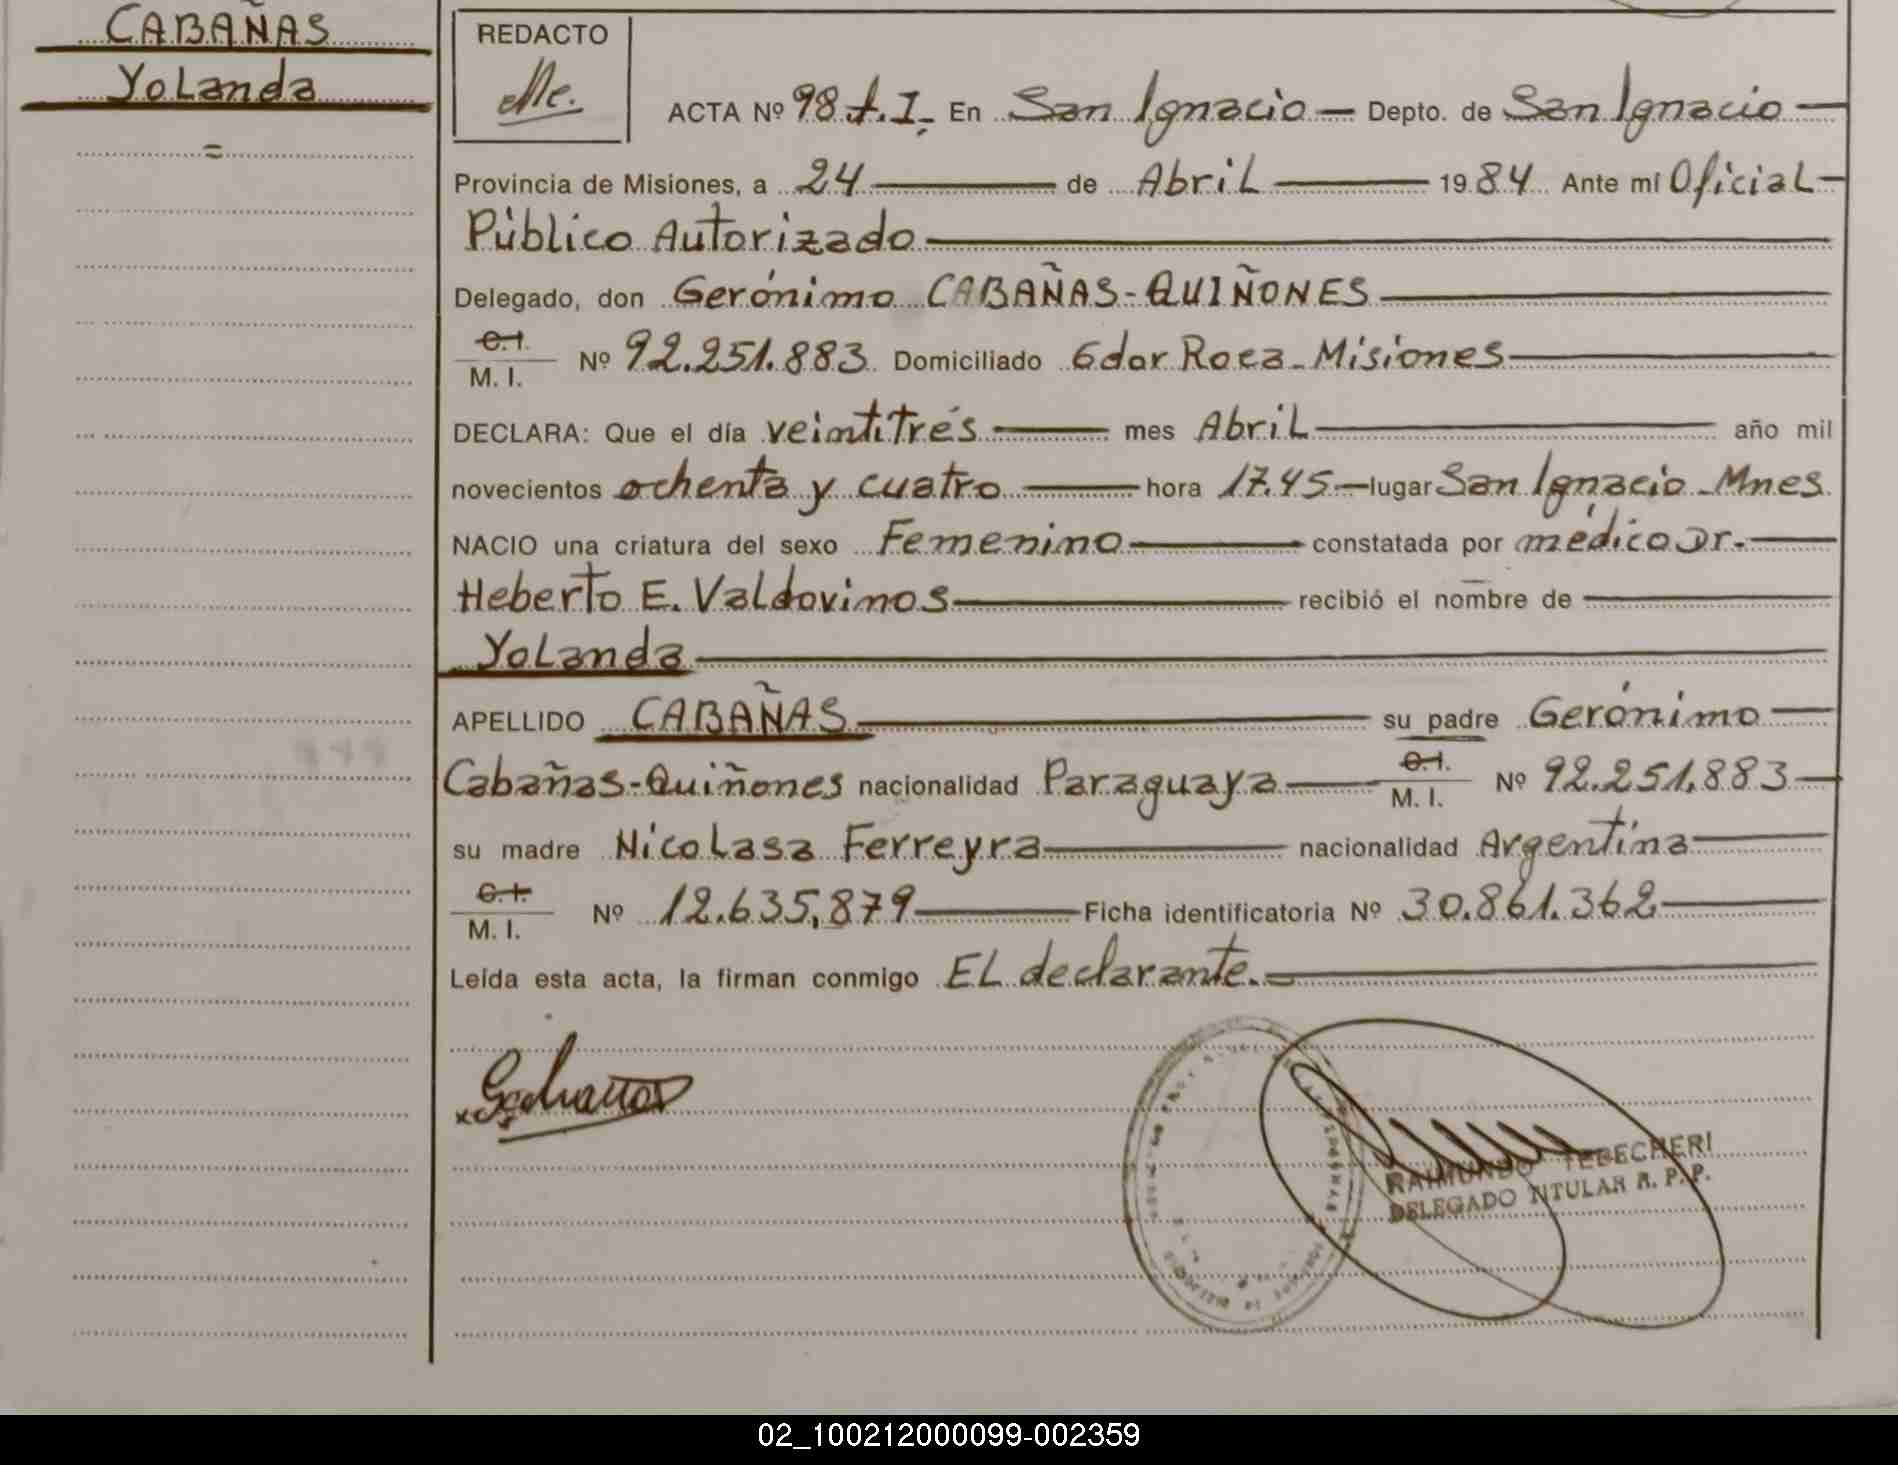 CABAÑAS
Yolanda
=
REDACTO
ACTA Nº 98.t.I. En San Ignacio — Depto. de San Ignacio —
Provincia de Misiones, a 24 — de Abril — 1984 Ante mí Oficial —
Público Autorizado —
Delegado, don Gerónimo CABAÑAS-QUIÑONES —
C.I.
M. I. Nº 92.251.883 Domiciliado Gdor Roca-Misiones —
DECLARA: Que el día veintitrés — mes Abril — año mil
novecientos ochenta y cuatro — hora 17.45 — lugar San Ignacio - Mnes
NACIO una criatura del sexo Femenino — constatada por médico Dr. —
Heberto E. Valdovinos — recibió el nombre de —
Yolanda —
APELLIDO CABAÑAS — su padre Gerónimo —
Cabañas-Quiñones nacionalidad Paraguaya — C.I. M. I. Nº 92.251.883 —
su madre Nicolasa Ferreyra — nacionalidad Argentina —
C.I.
M. I. Nº 12.635.879 — Ficha identificatoria Nº 30.861.362 —
Leída esta acta, la firman conmigo El declarante. —
RAIMUNDO TEBECHERI
DELEGADO TITULAR R. P. P.
02_100212000099-002359